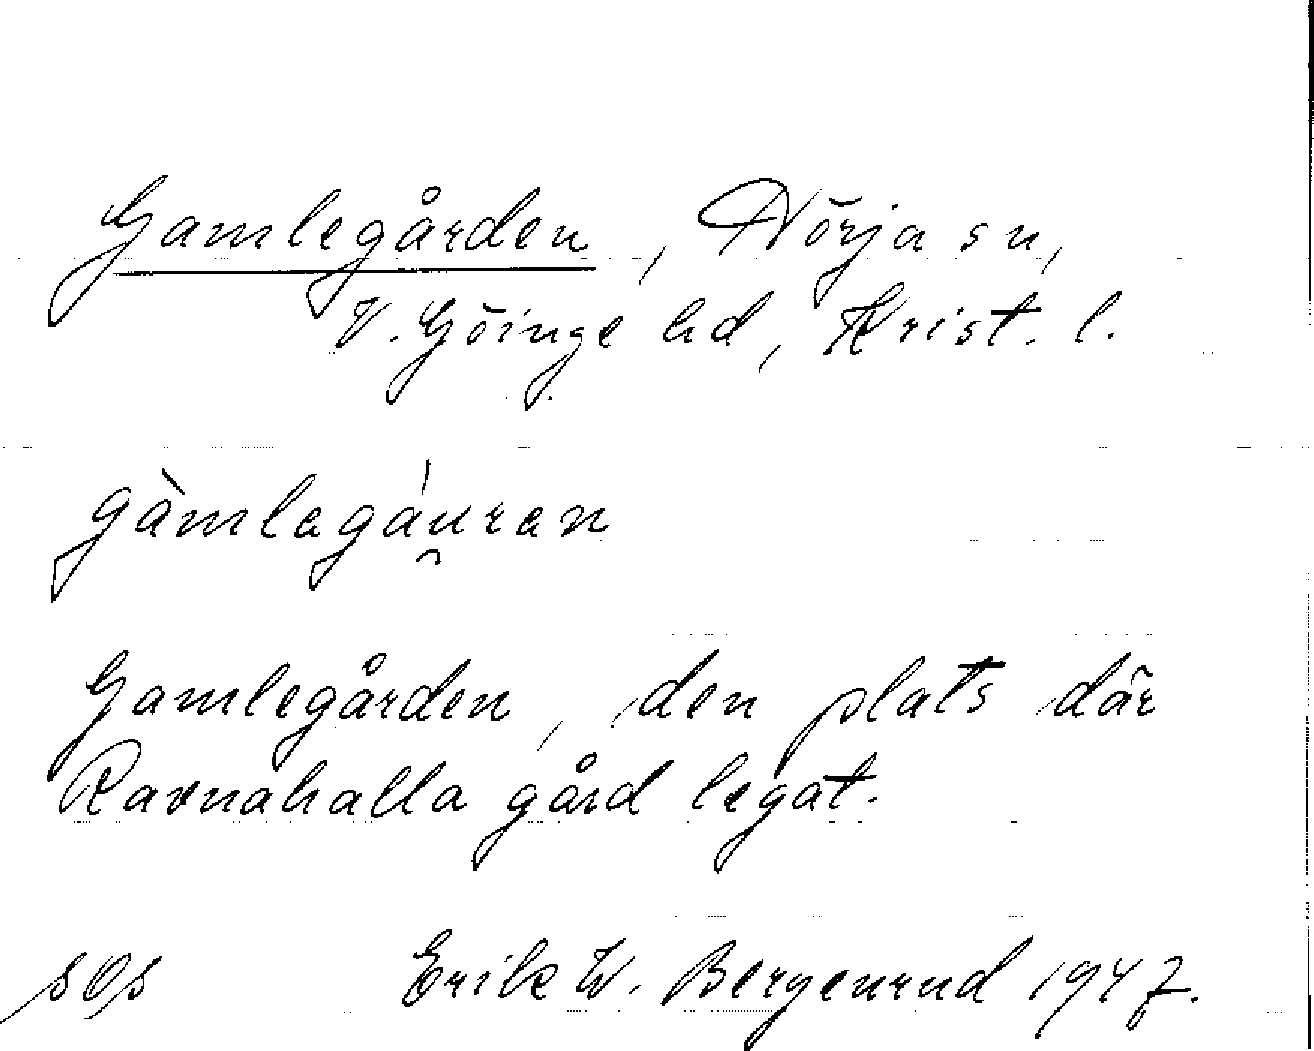 Gamlegården, Nörja sn,
V. Göinge hd, Krist. l.
gàmlagáu̯ran
Gamlegården, den plats där
Ravnahalla gård legat.
sOs Erik W. Bergenrud 1947.